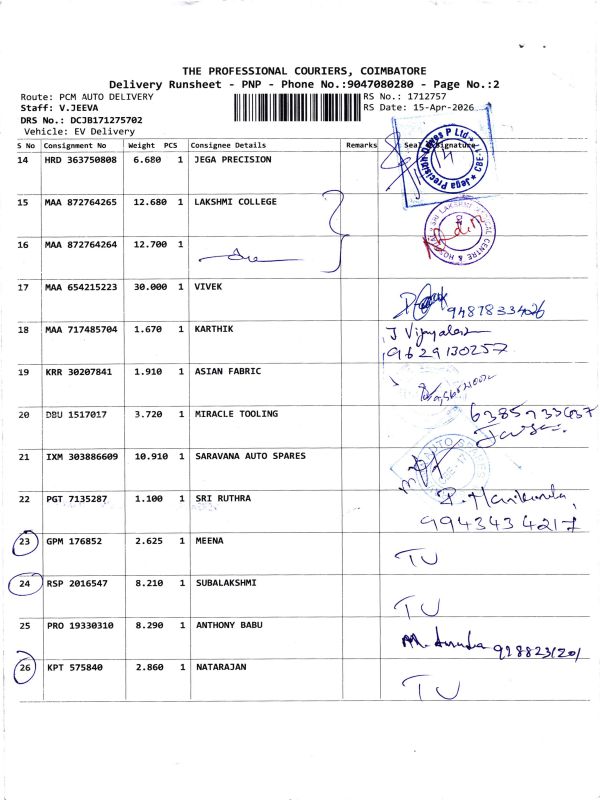 THE PROFESSIONAL COURIERS, COIMBATORE
Delivery Runsheet - PNP - Phone No.:9047080280 - Page No.:2
Route: PCM AUTO DELIVERY RS No.: 1712757
Staff: V.JEEVA RS Date: 15-Apr-2026
DRS No.: DCJB171275702
Vehicle: EV Delivery
S No Consignment No Weight PCS Consignee Details Remarks Seal Signature
14 HRD 363750808 6.680 1 JEGA PRECISION
15 MAA 872764265 12.680 1 LAKSHMI COLLEGE
16 MAA 872764264 12.700 1
17 MAA 654215223 30.000 1 VIVEK
18 MAA 717485704 1.670 1 KARTHIK J Vijayalax
9629130257
19 KRR 30207841 1.910 1 ASIAN FABRIC
20 DBU 1517017 3.720 1 MIRACLE TOOLING
21 IXM 303886609 10.910 1 SARAVANA AUTO SPARES
22 PGT 7135287 1.100 1 SRI RUTHRA
9943434217
23 GPM 176852 2.625 1 MEENA TU
24 RSP 2016547 8.210 1 SUBALAKSHMI TU
25 PRO 19330310 8.290 1 ANTHONY BABU
26 KPT 575840 2.860 1 NATARAJAN TU